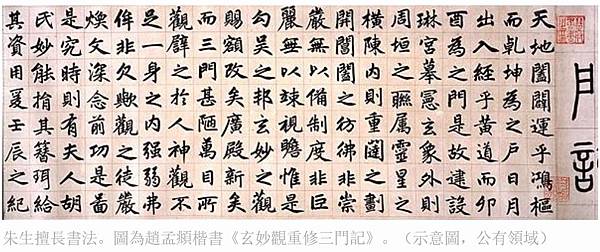 門記
天地闔闢運乎鴻樞
而乾坤為之戶日月
出入經乎黃道而卯
酉為之門是故建設
琳宮摹憲玄象外則
周垣之聯属靈星之
橫陳内則重闥之劃
開閶闔之彷彿非崇
嚴無以備制度非巨
麗無以竦視瞻惟是
勾吳之邦玄妙之觀
賜額改矣廣殿新矣
而三門甚陋萬目所
觀譬之於人神觀不
足一身之内强弱弗
侔非久歟觀之徒嚴
煥文深念前功是啚
是究時則有夫人胡
氏妙能捐其簪珥給
其資用爰壬辰之紀
朱生擅長書法。圖為趙孟頫楷書《玄妙觀重修三門記》。（示意圖，公有領域）